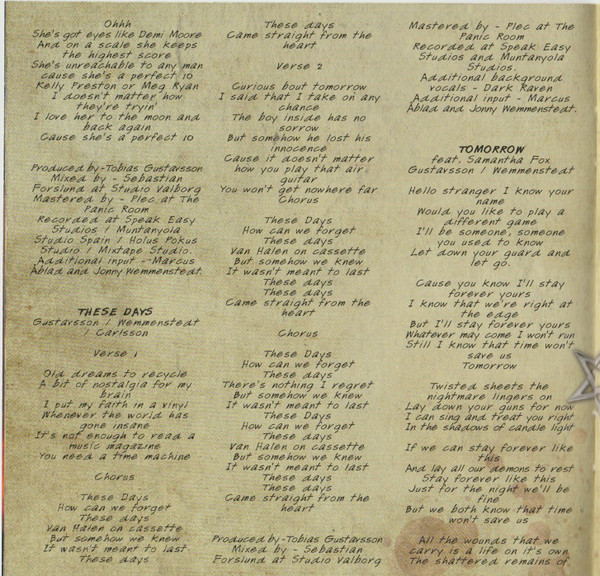 Ohhh
She's got eyes like Demi Moore
And on a scale she keeps
the highest score
She's unreachable to any man
cause she's a perfect 10
Kelly Preston or Meg Ryan
I doesn't matter how
they're tryin'
I love her to the moon and
back again
Cause she's a perfect 10
Produced by-Tobias Gustavsson
Mixed by - Sebastian
Forslund at Studio Valborg
Mastered by - Plec at The
Panic Room
Recorded at Speak Easy
Studios / Muntanyola
Studio Spain / Holus Pokus
Studio / Mixtape Studio.
Additional input - Marcus
Ablad and Jonny Wemmenstedt.
THESE DAYS
Gustavsson / Wemmenstedt
/ Carlsson
Verse 1
Old dreams to recycle
A bit of nostalgia for my
brain
I put my faith in a vinyl
Whenever the world has
gone insane
It's not enough to read a
music magazine
You need a time machine
Chorus
These Days
How can we forget
These days
Van Halen on cassette
But somehow we knew
It wasn't meant to last
These days
These days
Came straight from the
heart
Verse 2
Curious bout tomorrow
I said that I take on any
chance
The boy inside has no
sorrow
But somehow he lost his
innocence
Cause it doesn't matter
how you play that air
guitar
You won't get nowhere far
Chorus
These Days
How can we forget
These days
Van Halen on cassette
But somehow we knew
It wasn't meant to last
These days
These days
Came straight from the
heart
Chorus
These Days
How can we forget
These days
There's nothing I regret
But somehow we knew
It wasn't meant to last
These Days
How can we forget
These days
Van Halen on cassette
But somehow we knew
It wasn't meant to last
These days
These days
Came straight from the
heart
Produced by-Tobias Gustavsson
Mixed by - Sebastian
Forslund at Studio Valborg
Mastered by - Plec at The
Panic Room
Recorded at Speak Easy
Studios and Muntanyola
Studios.
Additional background
vocals - Dark Raven
Additional input - Marcus
Ablad and Jonny Wemmenstedt.
TOMORROW
feat. Samantha Fox
Gustavsson / Wemmenstedt
Hello stranger I know your
name
Would you like to play a
different game
I'll be someone, someone
you used to know
Let down your guard and
let go.
Cause you know I'll stay
forever yours
I know that we're right at
the edge
But I'll stay forever yours
Whatever may come I won't run
Still I know that time won't
save us
Tomorrow
Twisted sheets the
nightmare lingers on
Lay down your guns for now
I can sing and treat you right
In the shadows of candle light
If we can stay forever like
this
And lay all our demons to rest
Stay forever like this
Just for the night we'll be
fine
But we both know that time
won't save us
All the wounds that we
carry is a life on it's own
The shattered remains of